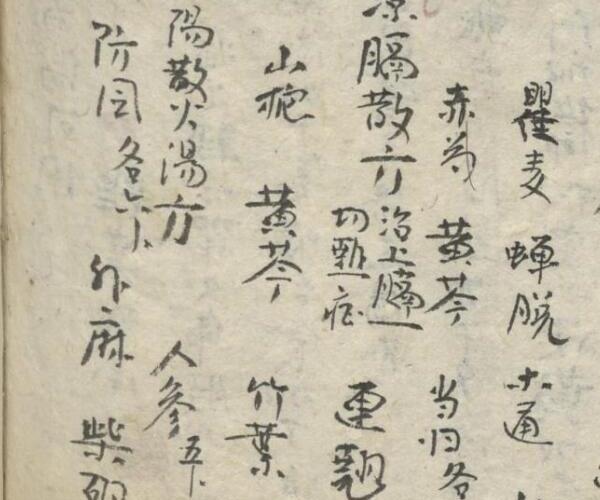 瞿麦 蝉脱 木通
赤芍 黄芩 当归各
凉膈散方 治上膈一切熱症 連翹
山栀 黄芩 竹葉
陽散火湯方 人參五卜
防風各六卜 升麻 柴胡